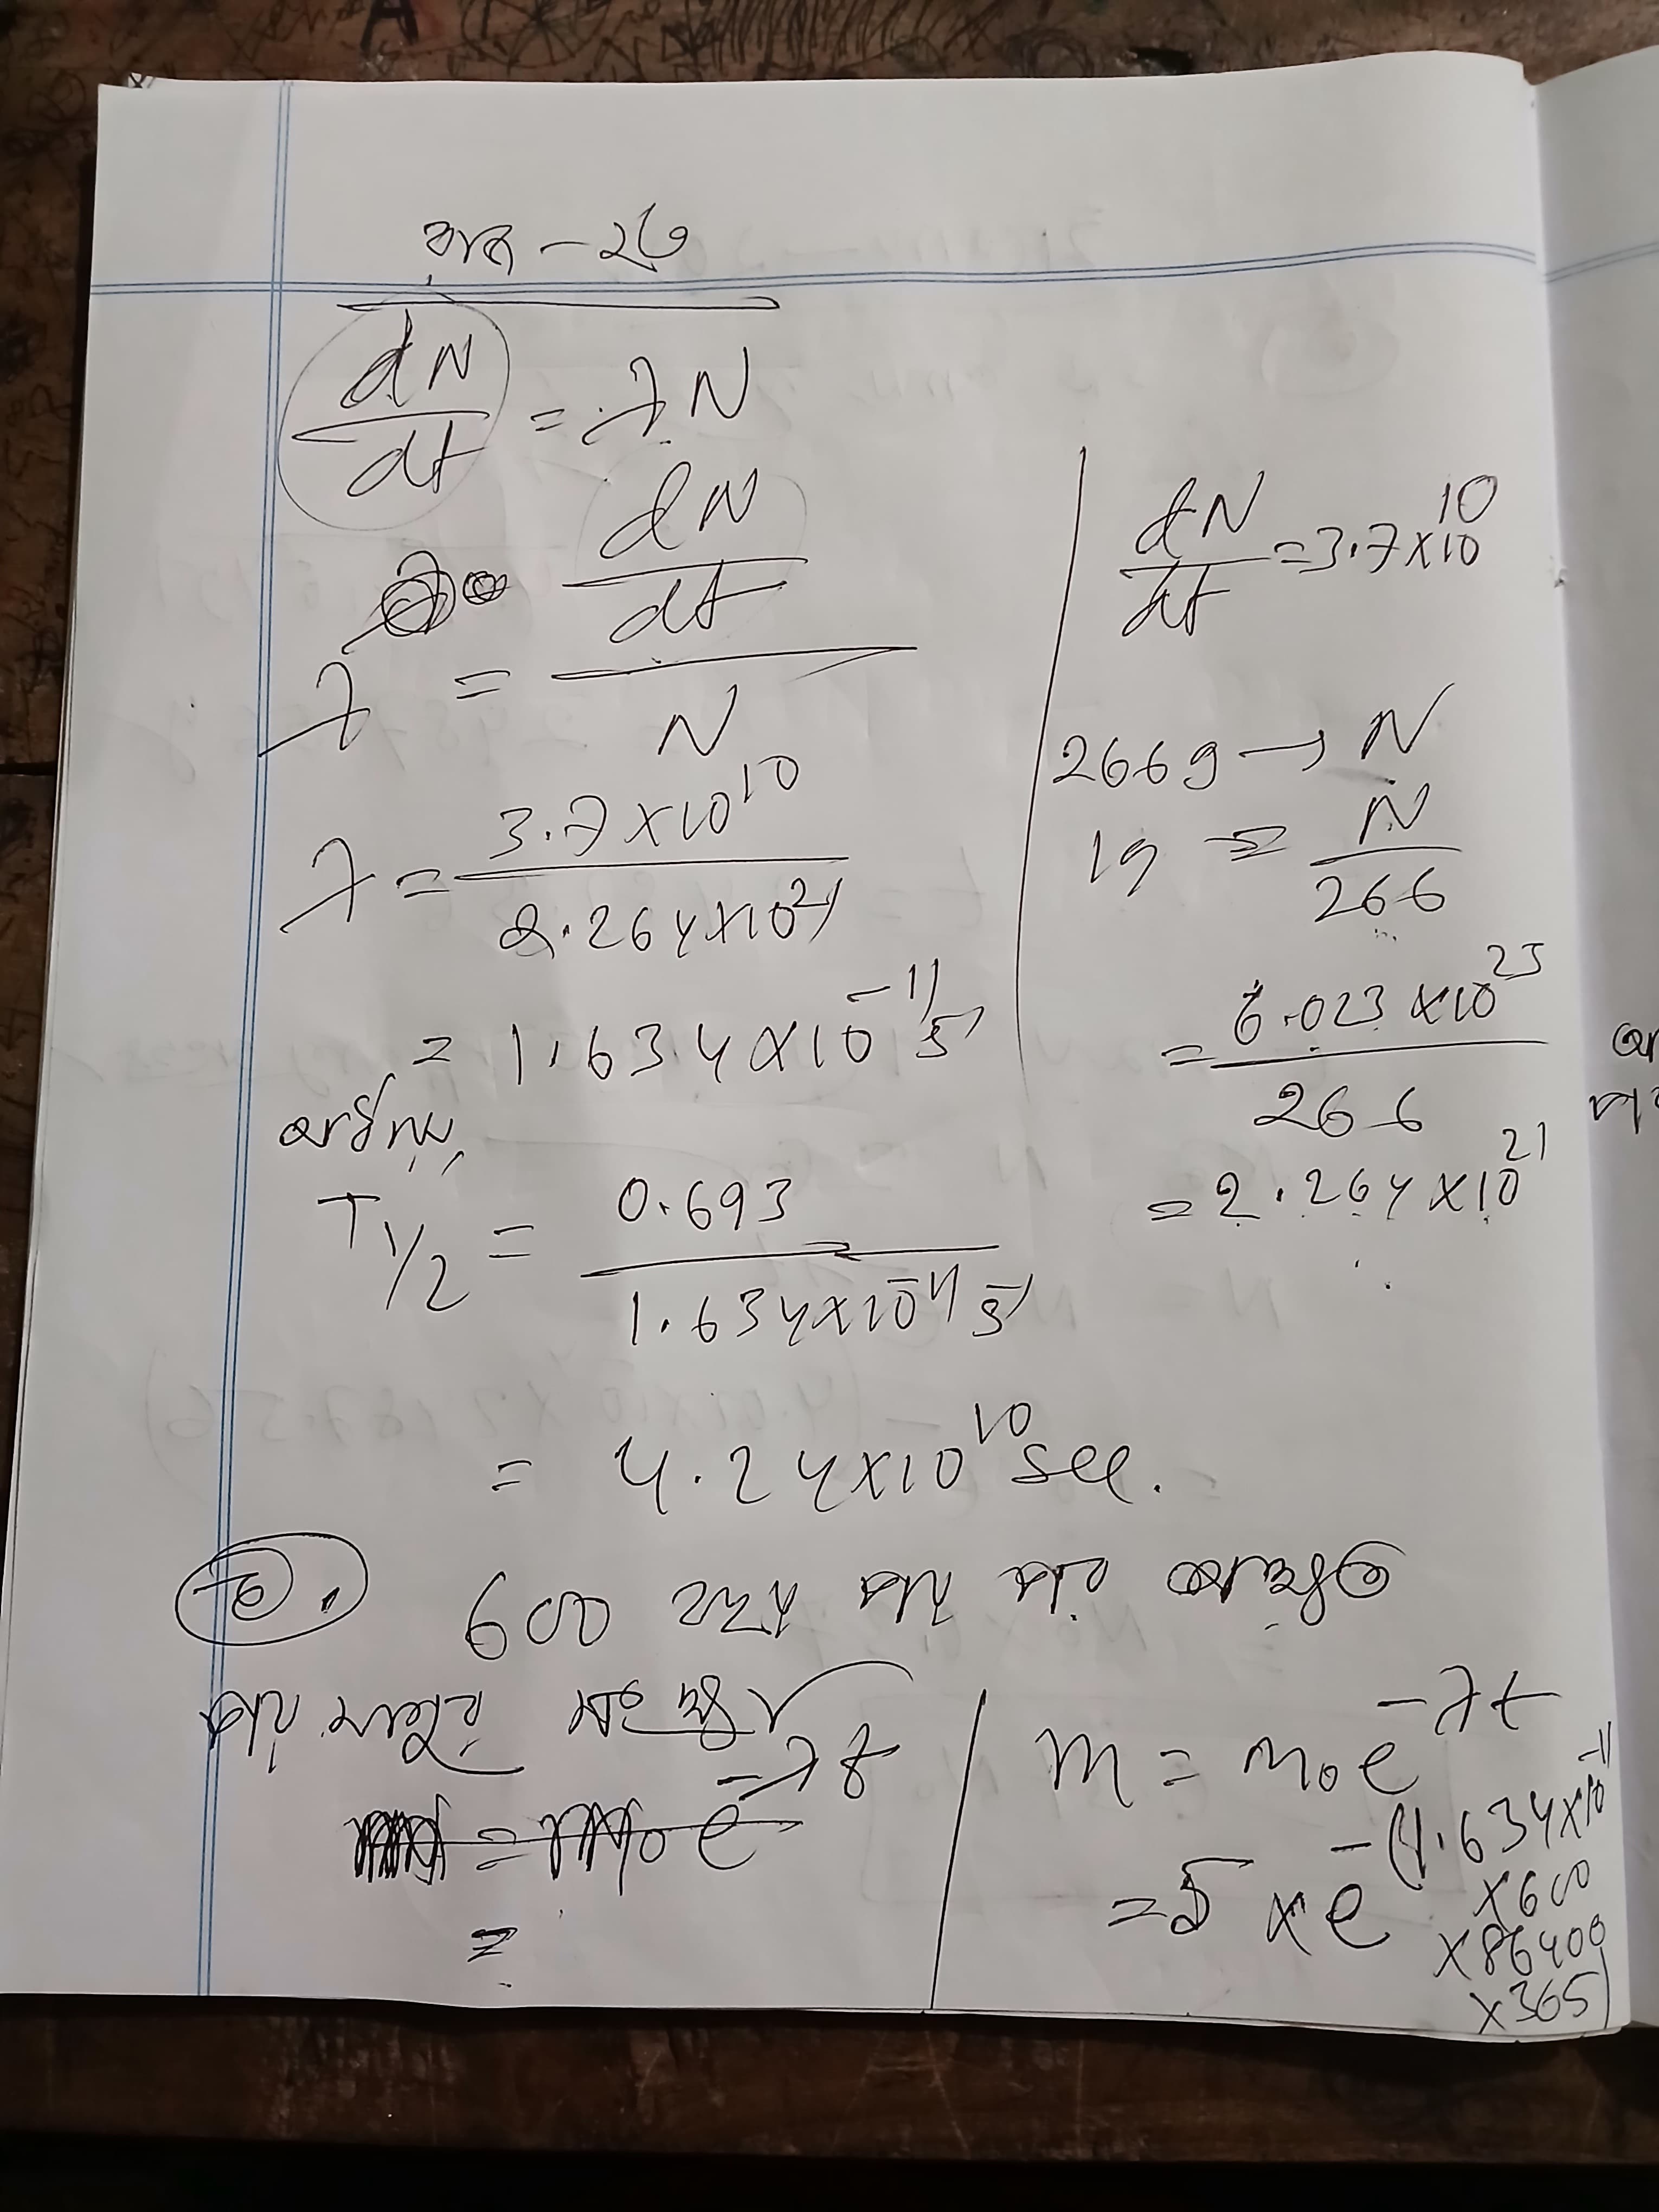 ২৬
dN/dt = λN
λ = (dN/dt)/N
λ = 3.7×10^10 / 2.264×10^21
= 1.634×10^-11 s^-1
T1/2 = 0.693 / 1.634×10^-11 s^-1
= 4.24×10^10 sec.
dN/dt = 3.7×10^10
266g → N
1g = N/266
= 6.023×10^23 / 266
= 2.264×10^21
600 পর
m = m₀e^-λt
= 5 × e^-(1.634×10^-11 ×600 ×86400 ×365)
=